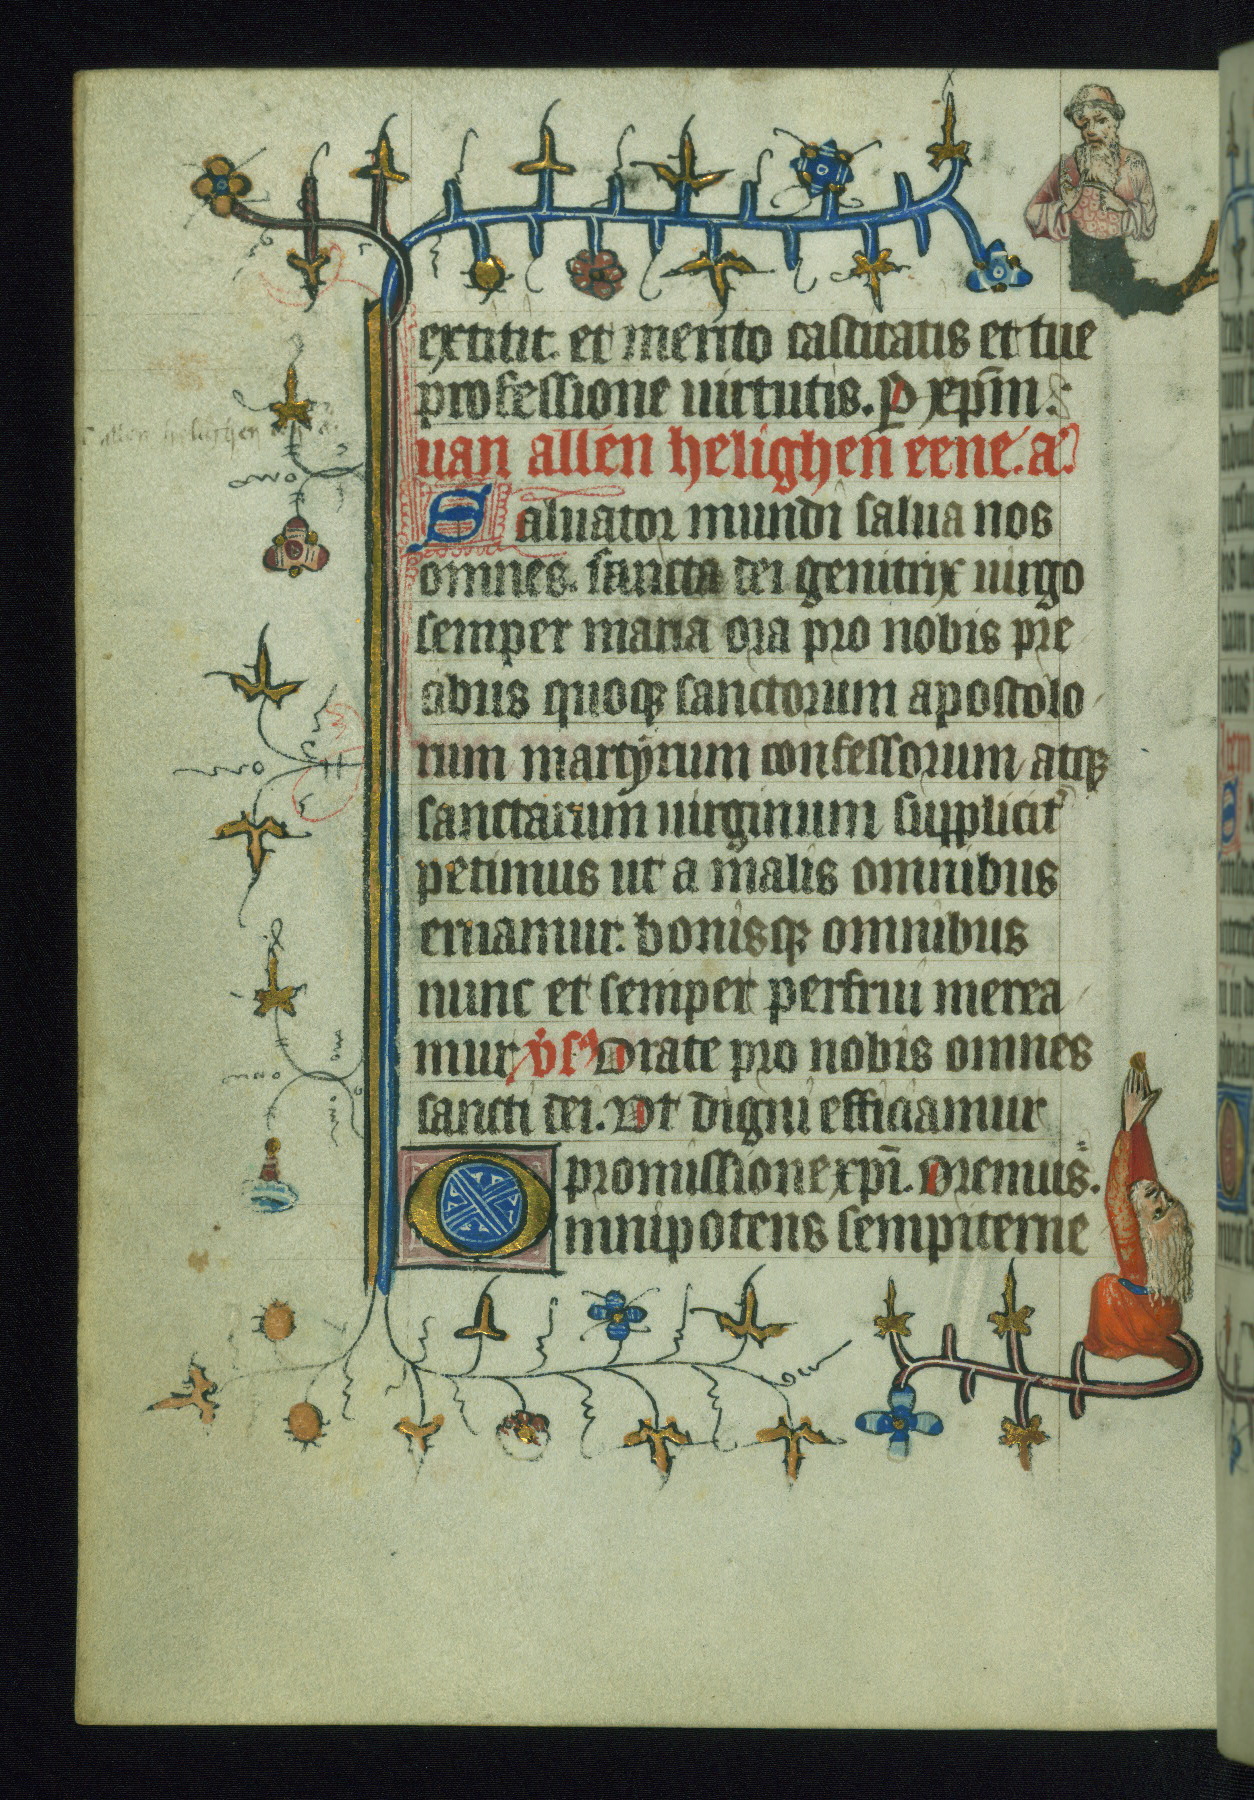 extitit. et merito castitatis et tue
professione uirtutis. P xp̄m.
uan allen helighen eene. a͛.
Saluator mundi salua nos
omnes. sancta dei genitrix uirgo
semper maria ora pro nobis pre
cibus quoqꝫ sanctorum apostolo
rum martyrum confessorum atqꝫ
sanctarum uirginum supplicit᷑
petimus ut a malis omnibus
eruamur. bonisqꝫ omnibus
nunc et semper perfrui merea
mur v͛s͛ Orate pro nobis omnes
sancti dei. Vt digni efficiamur
promissione xp̄i. Oremus.
Omnipotens sempiterne
allen helighen